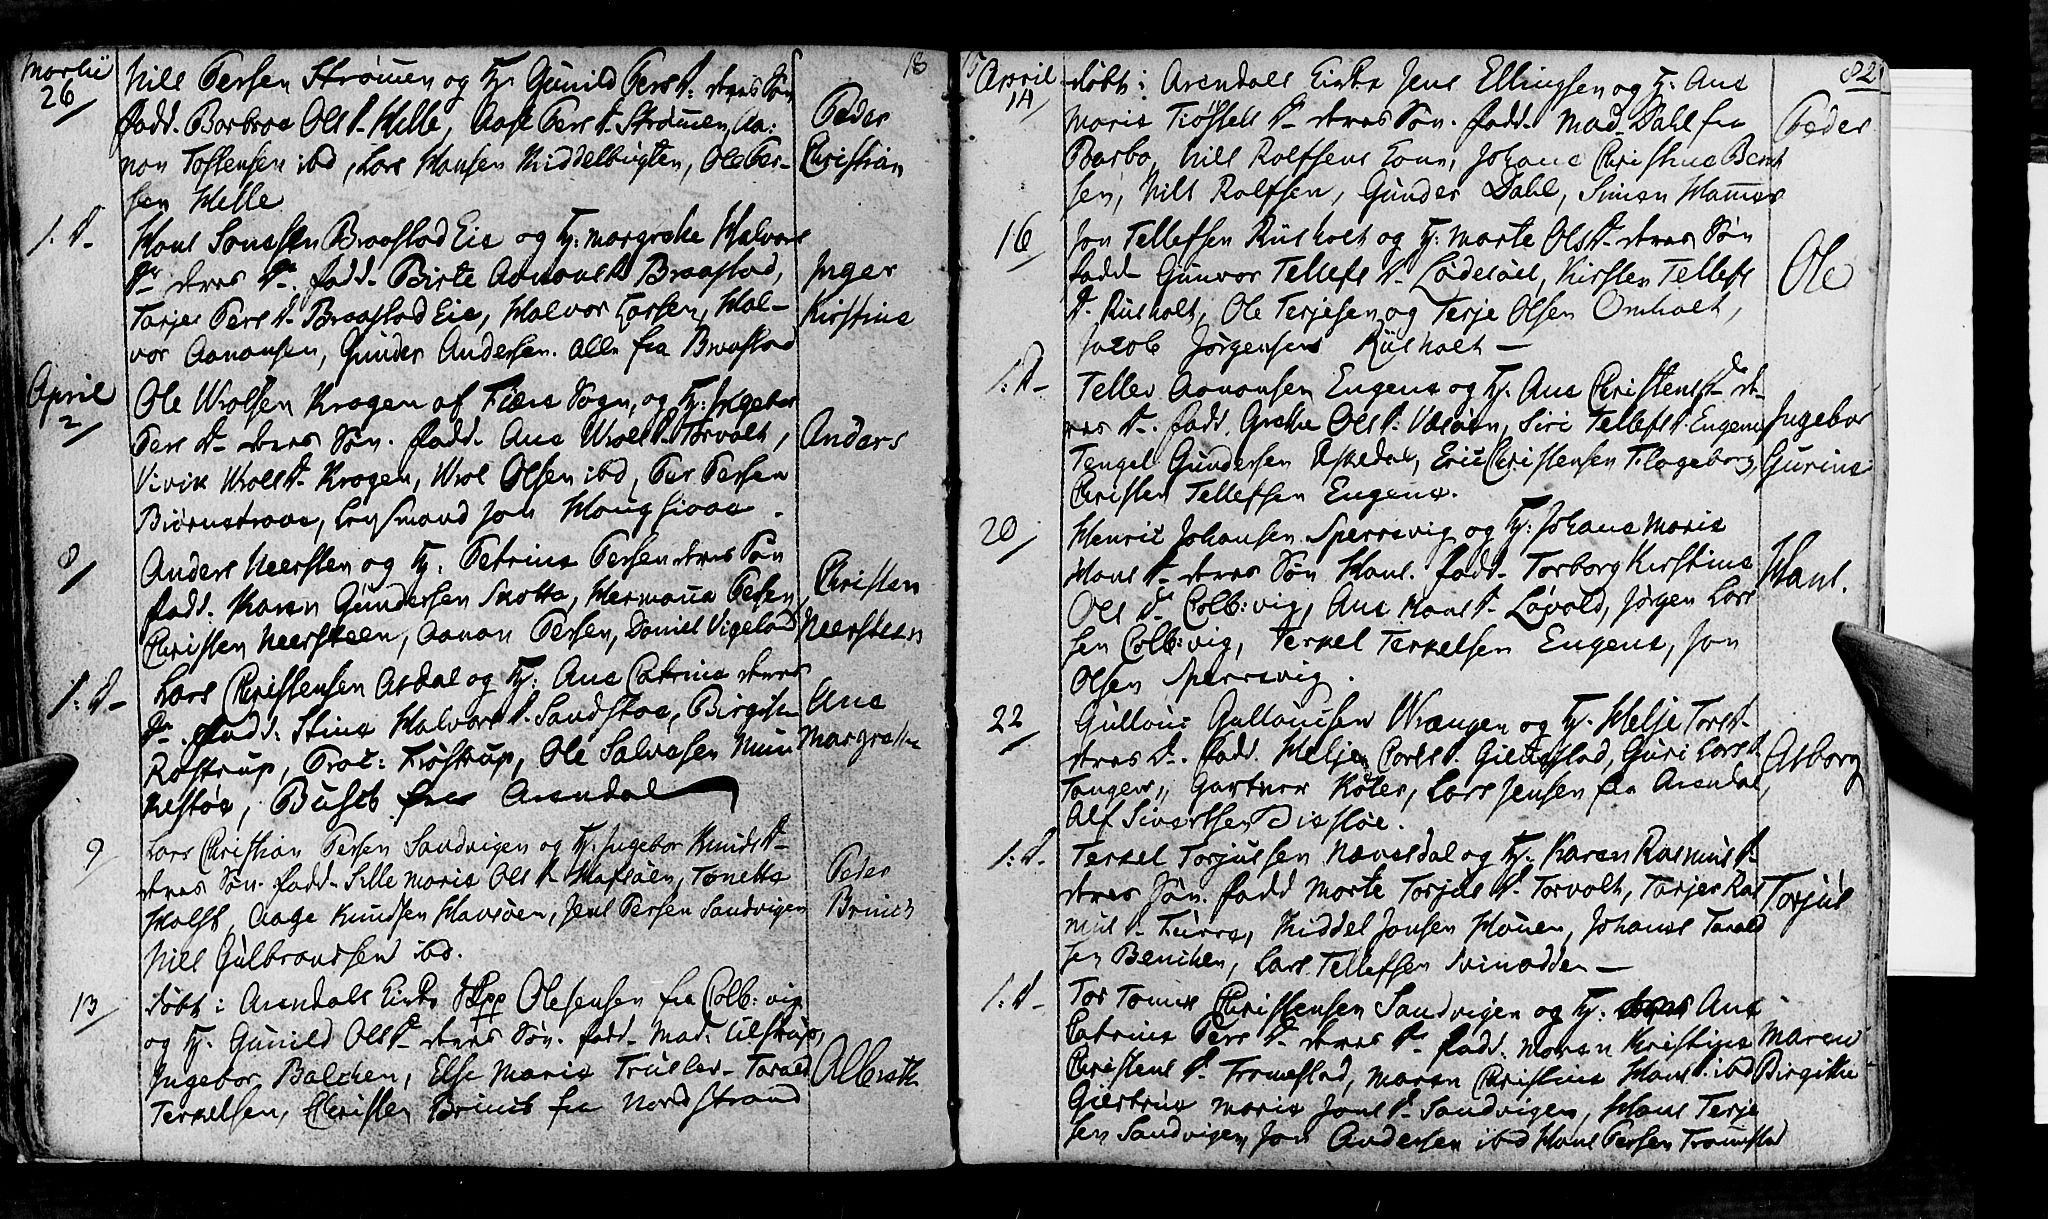 Martii
26
Nils Persen Strømmen og Hu: Gunild Pers D. deres Søn
fadd. Barbroe Ols D. Helle, Aase Pers D. Strømmen, Aa:
non Tostensen ibd, Lars Hansen Kiddelbugten, Ole Per-
sen Helle
Peder
Christian
18
1. D.
Hans Braastad Eie og Hu: Margrethe Halvors
Dr. deres Dr. fadd. Birte Aanons D. Braastad,
Tarjer Pers D. Braastad Eie, Halvor Larsen, Hal-
vor Aanonsen, Gunder Andersen. alle fra Braastad
Inger
Kirstine
April
2
Ole Wrolsen Kragen af Sogn, og Hu: Ingebor
Pers D. deres Søn. fadd. Ane Wrols D. Torvolt,
Vivik Wrols D. Kragen, Wrol Olsen ibd, Per Persen
Biørnstraae, Leysmand Jon Haugsiaae.
Anders
8
Anders Neersten og Hu: Petrine Persen deres Søn
fadd. Maren Gundersen Hermana Persen
Christen Neersteen, Aanon Persen, Daniel Vigeland
Christen
Neersteen
1: D.
Lars Christensen Asdal og Hu: Ane Catrine deres
Dr. fadd: Stine Halvors D. Sandstøe, Birgithe
Røstrup, Proc: Frøstrup, Ole Salvesen Mun
kestøe, fra Arendal
Ane
Margrethe
9
Lars Christian Persen Sandvigen og Hu: Ingebor Knuds D.
deres Søn. fadd. Sille Marie Ols D. Hafsøen, Tonette
Holst, Aage Knudsen Havsøen, Jens Persen Sandvigen
Nils Gulbrandsen ibd.
Peder
Brinch
13
døbt i Arendals Kirke Olesensen fra Colb:vig
og Hu. Gunild Ols D. deres Søn. fadd. Mad: Tilstrup,
Ingebor Balchen, Else Marie Trusler, Tarald
Terkelsen, Christen Brinch fra Nordstrand
Albreth
82
April
14
døbt i Arendals Kirke Jens Ellingsen og Hu. Ane
Marie Tiøstels D. deres Søn. fadd. Mad. Dahl fra
Barbo, Nils Rolfsens Kone, Johane Christine Bent
sen, Nils Rolfsen, Gunder Dahl, Simen Hammer
Peder
16
Jon Tellefsen Rüsholt og Hu: Marte Ols D. deres Søn
fadd. Gunvor Tellefs D. Lødesøel, Kirsten Tellefs
D. Rüsholt, Ole Terjesen og Terje Olsen Omholt,
Jacob Jørgensen Rüsholt
Ole
1: D.
Tellev Aanonsen Engene og Hu. Ane Christens Dr. de-
res D. fadd. Grethe Ols D: Siri Tellefs D. Engene
Tengel Gundersen Askedal, Eric Christensen Flageborg
Christen Tellefsen Engene.
Ingebor
Gurine
20
Henric Johansen Spersvig og Hu: Johane Marie
Hans D. deres Søn Hans. fadd. Torborg Kirstine
Ols D. Colb:vig, Ane Hans D. Løvold, Jørgen Lars
sen Colb:vig, Terkel Terkelsen Engene, Jon
Olsen Spersvig.
Hans.
22
Gullou Gullousen Wrengen og Hu. Helje Tors D.
deres D. fadd. Helje D. Guri Lars D.
Tangen, Gartner Köter, Lars Jensen fra Arendal,
Alf Sivertsen Disthøe.
Asborg
1: D.
Terkel Torjussen Nævesdal og Hu. Karen Rasmus D.
deres Søn. fadd. Marte Torjus D. Torvolt, Tarjer Ras
mus D. Furre, Kiddel Jonsen Houen, Johans Tarald
sen Benchen, Lars Tellefsen Svinodden
Torjus
1: D.
Tor Tomas Christensen Sandvigen og Hu. Ane
Catrine Pers D. deres D. fadd. Maren Kirstine
Christens D. Tromestad, Maren Christine Hans D. ibd
Giertrue Marie Jons D. Sandvigen, Hans Terje
sen Sandvigen, Jon Andersen ibd Hans Persen Tromstad
Maren
Birgithe